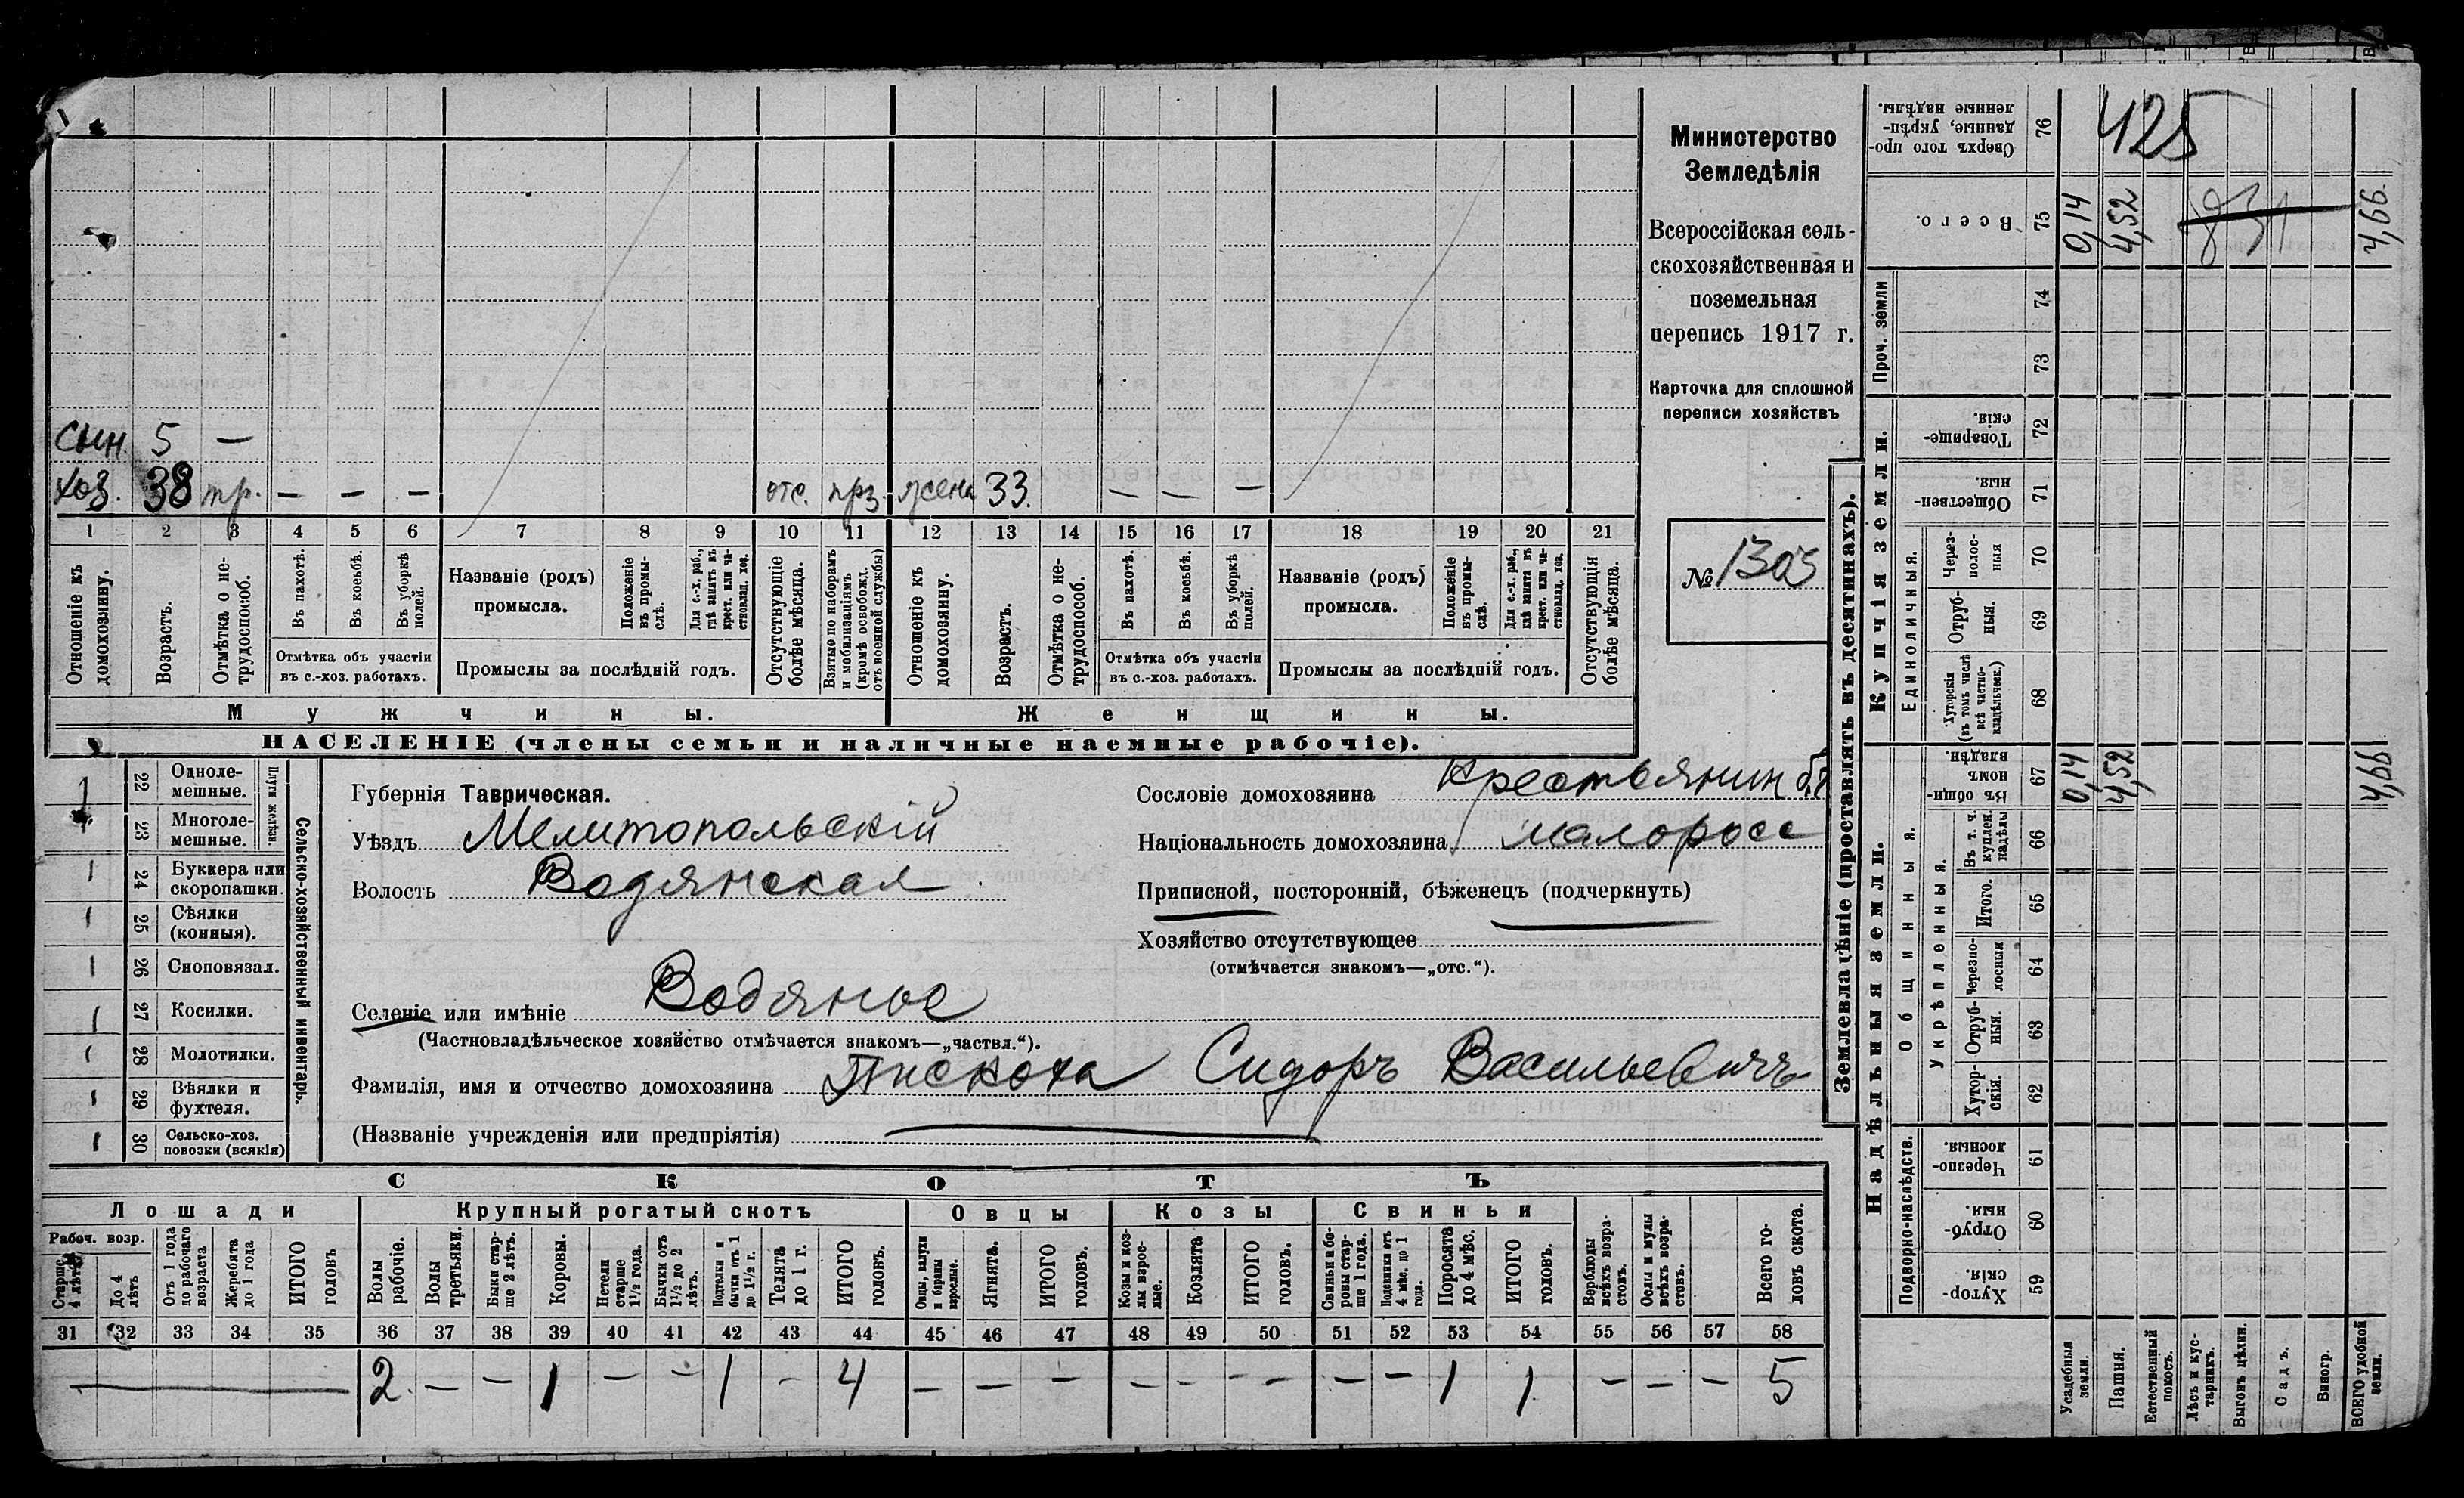 Министерство
Земледѣлія
Всероссійская сель-
скохозяйственная и
поземельная
перепись 1917 г.
Карточка для сплошной
переписи хозяйствъ
№ 1305
сын. 5 —
хоз. 38 тр. — — — отс. прз. жена 33. — — —
1 2 3 4 5 6 7 8 9 10 11 12 13 14 15 16 17 18 19 20 21
Отношеніе къ домохозяину.
Возрастъ.
Отмѣтка о не-трудоспособ.
Въ пахотѣ.
Въ косьбѣ.
Въ уборкѣ полей.
Отмѣтка объ участіи
въ с.-хоз. работахъ.
Названіе (родъ)
промысла.
Положеніе въ промы-слѣ.
Для с.-х. раб., гдѣ занятъ въ крест. или ча-стновлад. хоз.
Промыслы за послѣдній годъ.
Отсутствующіе болѣе мѣсяца.
Взятые по наборамъ и мобилизаціямъ (кромѣ освобожд. отъ военной службы)
Отношеніе къ домохозяину.
Возрастъ.
Отмѣтка о не-трудоспособ.
Въ пахотѣ.
Въ косьбѣ.
Въ уборкѣ полей.
Отмѣтка объ участіи
въ с.-хоз. работахъ.
Названіе (родъ)
промысла.
Положеніе въ промы-слѣ.
Для с.-х. раб., гдѣ занята въ крест. или ча-стновлад. хоз.
Промыслы за послѣдній годъ.
Отсутствующія болѣе мѣсяца.
Мужчины. Женщины.
НАСЕЛЕНІЕ (члены семьи и наличные наемные рабочіе).
Сельско-хозяйственный инвентарь.
Плуги желѣзн.
22 Одноле-мешные.
23 Многоле-мешные.
24 Буккера или скоропашки.
25 Сѣялки (конныя).
26 Сноповязал.
27 Косилки.
28 Молотилки.
29 Вѣялки и фухтеля.
30 Сельско-хоз. повозки (всякія)
Губернія Таврическая.
Уѣздъ Мелитопольскій
Волость Водянская
Селеніе или имѣніе Водяное
(Частновладѣльческое хозяйство отмѣчается знакомъ—„частвл.“).
Фамилія, имя и отчество домохозяина Пискоха Сидоръ Васильевичъ
(Названіе учрежденія или предпріятія)
Сословіе домохозяина Крестьянин
Національность домохозяина малоросс
Приписной, посторонній, бѣженецъ (подчеркнуть)
Хозяйство отсутствующее
(отмѣчается знакомъ—„отс.“).
СКОТЪ
Лошади Крупный рогатый скотъ Овцы Козы Свиньи
Рабоч. возр.
Старше 4 лѣтъ
До 4 лѣтъ
Отъ 1 года до рабочаго возраста
Жеребята до 1 года
ИТОГО головъ
Волы рабочіе.
Волы третьяки.
Быки стар-ше 2 лѣтъ.
Коровы.
Нетели старше 1½ года.
Бычки отъ 1½ до 2 лѣтъ.
Подтелки и бычки отъ 1 до 1½ г.
Телята до 1 г.
ИТОГО головъ.
Овцы, валухи и бараны взрослые.
Ягнята.
ИТОГО головъ.
Козы и коз-лы взрос-лые.
Козлята
ИТОГО головъ.
Свиньи и бо-ровы стар-ше 1 года.
Подсвинки отъ 4 мѣс. до 1 года.
Поросята до 4 мѣс.
ИТОГО головъ.
Верблюды всѣхъ возра-стовъ.
Ослы и мулы всѣхъ возра-стовъ.
Всего го-ловъ скота.
31 32 33 34 35 36 37 38 39 40 41 42 43 44 45 46 47 48 49 50 51 52 53 54 55 56 57 58
— 2. — — 1 — — 1 — 4 — — — — — — — — — 1 1 — — — 5
Землевладѣніе (проставлять въ десятинахъ).
Надѣльныя земли. Купчія земли. Проч. земли
Подворно-наслѣдств.
Общинныя.
Укрѣпленныя.
Единоличныя.
76 Сверхъ того про-данные, укрѣп-ленные надѣлы. 425
75 Всего. 0,14 4,52 831 4,66.
74
73
72 Товарище-скія.
71 Обществен-ныя.
70 Через-полос-ныя
69 Отруб-ныя.
68 Хуторскія (въ томъ числѣ всѣ частно-владѣльческ.)
67 Въ общи-номъ владѣн. 0,14 4,52 4,66
66 Въ т. ч. куплен. надѣлы
65 Итого.
64 Черезпо-лосныя
63 Отруб-ныя.
62 Хутор-скія.
61 Черезпо-лосныя.
60 Отруб-ныя.
59 Хутор-скія.
Усадебныя земли.
Пашня.
Естественный покосъ.
Лѣсъ и кус-тарникъ.
Выгонъ цѣлин.
Садъ.
Виногр.
ВСЕГО удобной земли.